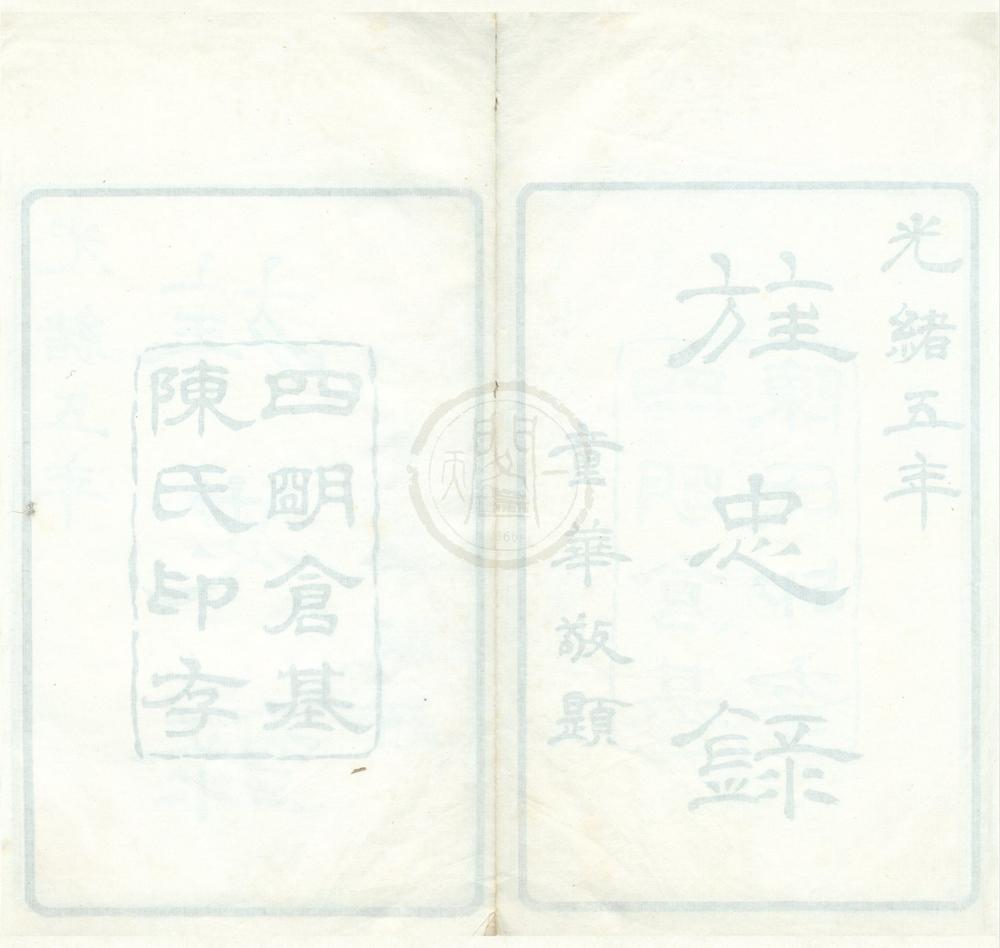 光緒五年
旌忠録
童華敬題
四明倉基
陳氏印存